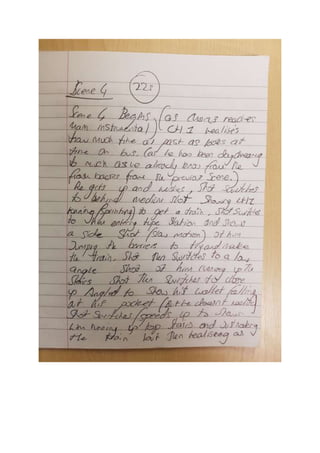 Scene 4 225
Scene 4 Begins, (as chorus reaches
main instrumental) CH 1 realises
how much time as past as looks at
time on bus. (as he has been daydreaming
to much as we already know from the
flash backs from the previous scene.)
He gets up and rushes, shot switches
to behind medium shot showing CH1
running (sprinting) to get a train, shot switches
to when entering train station and shows
a side shot (slow motion) of him
Jumping the barriers to try and make
the train. Shot then switches to a low
angle shot of him running up the
stairs shot then switches to close
up angled to show his wallet falling
out his pocket (but he doesn't realise)
Shot switches/speeds up to show
him running up top stairs and just making
the train but then realising as